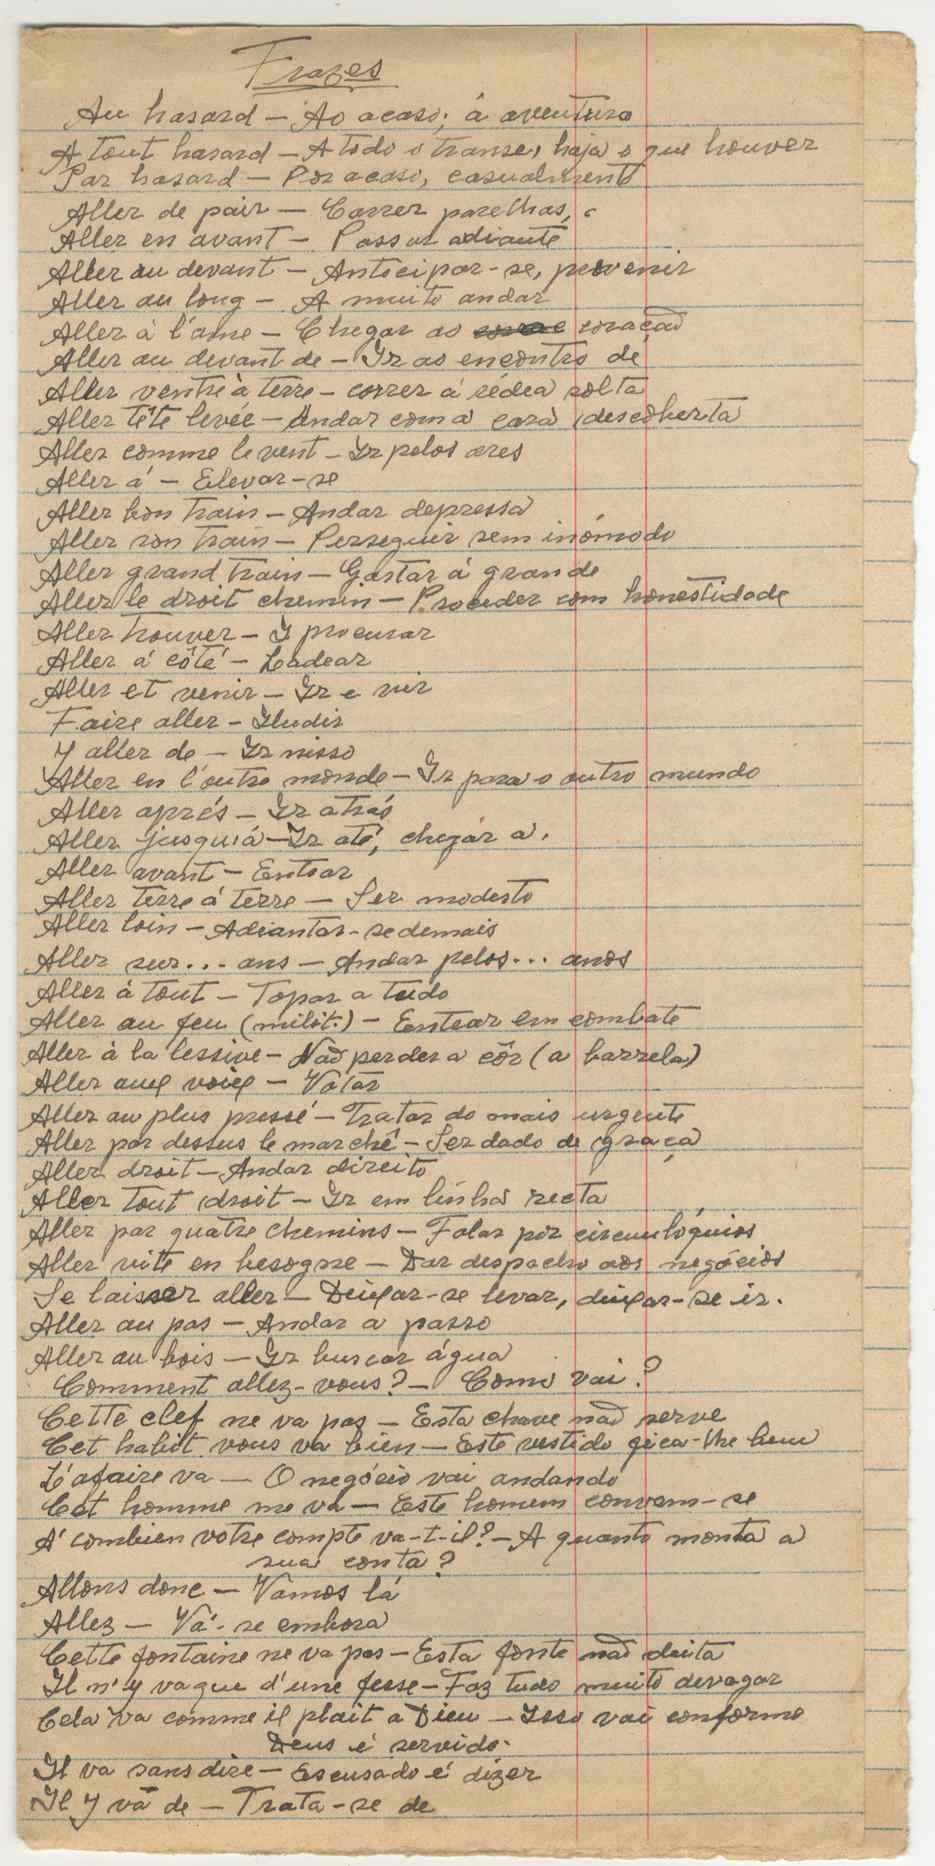 Frazes
Au hasard – Ao acaso; á aventura
A tout hasard – A todo o transe, haja o que houver
Par hasard – Por acaso, casualmente
Aller de pair – Correr parelhas,
Aller en avant – Passar adiante
Aller au devant – Antecipar-se, prevenir
Aller au long – A muito andar
Aller à l'ame – Chegar ao coração
Aller au devant de – Ir ao encontro de
Aller ventre à terre – correr á rédea solta
Aller tête levée – Andar com a cara descoberta
Aller comme le vent – Ir pelos ares
Aller á – Elevar-se
Aller bon train – Andar depressa
Aller son train – Perseguir sem inómodo
Aller grand train – Gastar á grande
Aller le droit chemin – Proceder com honestidade
Aller trouver – I procurar
Aller á côté – Ladear
Aller et venir – Ir e vir
Faire aller – Iludir
Y aller de – Ir nisso
Aller en l'autre monde – Ir para o outro mundo
Aller aprés – Ir atrás
Aller jusqu'á – Ir até, chegar a.
Aller avant – Entrar
Aller terre á terre – Ser modesto
Aller loin – Adiantar-se demais
Aller sur... ans – Andar pelos... anos
Aller à tout – Topar a tudo
Aller au feu (milit.) – Entrar em combate
Aller à la lessive – Não perder a côr (a barrela)
Aller aux voix – Votar
Aller au plus pressé – Tratar do mais urgente
Aller par dessus le marché – Ser dado de graça
Aller droit – Andar direito
Aller tout droit – Ir em linha recta
Aller par quatre chemins – Falar por circunlóquios
Aller vite en besogne – Dar despacho aos negócios
Se laisser aller – Deixar-se levar, deixar-se ir.
Aller au pas – Andar a passo
Aller au bois – Ir buscar água
Comment allez-vous? – Como vai?
Cette clef ne va pas – Esta chave não serve
Cet habit vous va bien – Este vestido fica-lhe bem
L'afaire va – O negócio vai andando
Cet homme me va – Este homem convem-se
A' combien votre compte va-t-il? – A quanto monta a
sua conta?
Allons donc – Vamos lá
Allez – Vá-se embora
Cette fontaine ne va pas – Esta fonte não deita
Il n'y va que d'une fesse – Faz tudo muito devagar
Cela va comme il plait a Dieu – Isso vai conforme
Deus é servido.
Il va sans dire – Escusado é dizer
Il y va de – Trata-se de